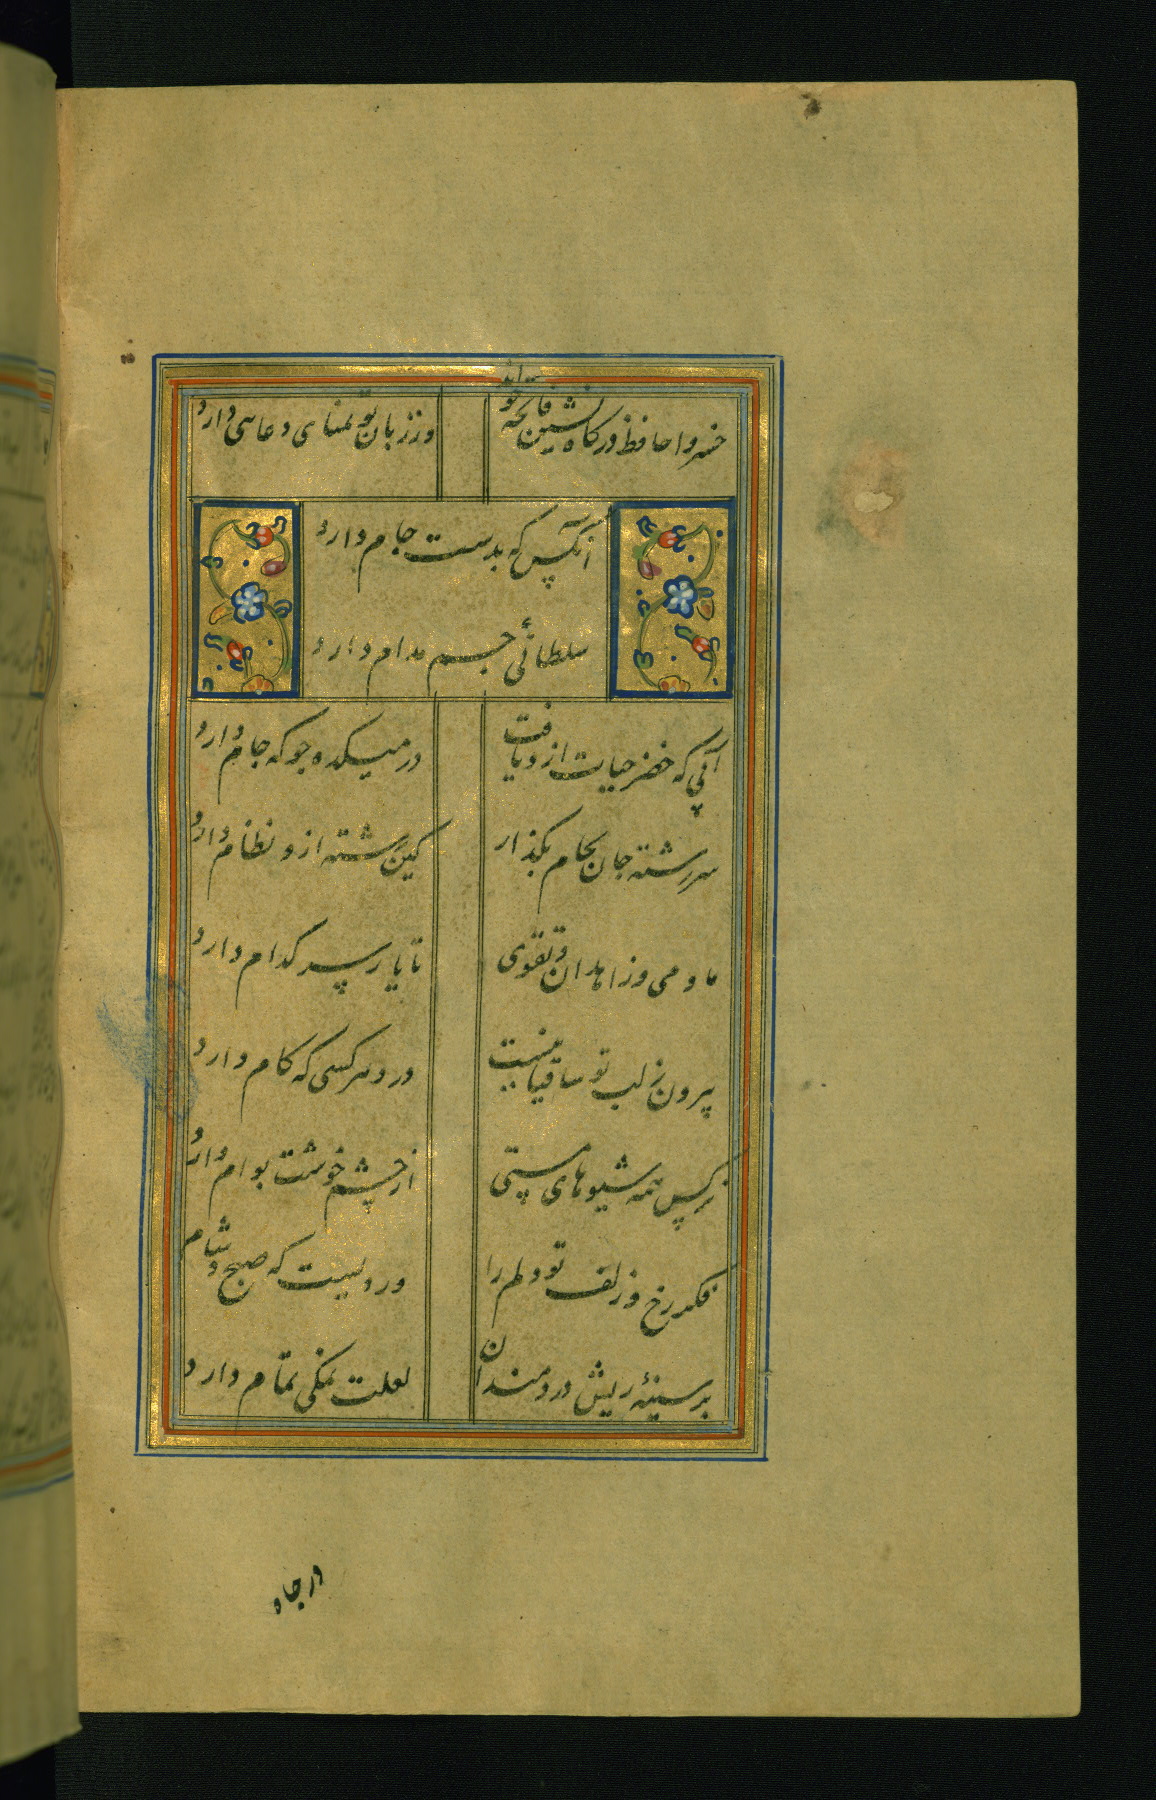 خسروا حافظ درگاه نشین فاتحه خواند
وز زبان تو تمنای دعایی دارد
آنکس که بدست جام دارد
سلطانی جم مدام دارد
آبی که خضر حیات ازو یافت
در میکده جو که جام دارد
سررشته جان بجام بگذار
کین رشته ازو نظام دارد
ما و می و زاهدان و تقوی
تا یار سر کدام دارد
بیرون ز لب تو ساقیا نیست
در دور کسی که کام دارد
نرگس همه شیوهای مستی
از چشم خوشت بوام دارد
فکر رخ و زلف تو دلم را
وردیست که صبح و شام
بر سینهٔ ریش دردمندان
لعلت نمکی تمام دارد
در چاه